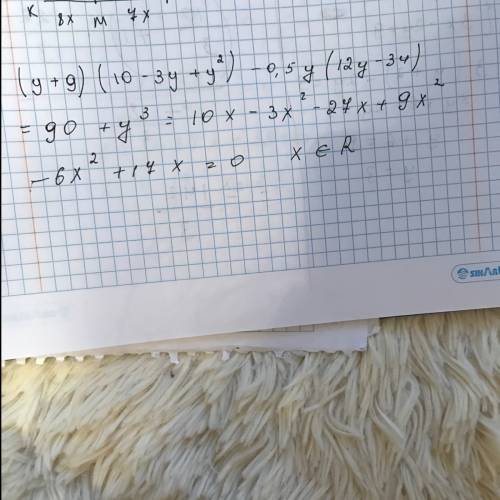 K 8x M 7x
(y + 9)(10 - 3y + y²) - 0,5y(12y - 34)
= 90 + y³ = 10x - 3x² - 27x + 9x²
- 6x² + 17x = 0 x ∈ R